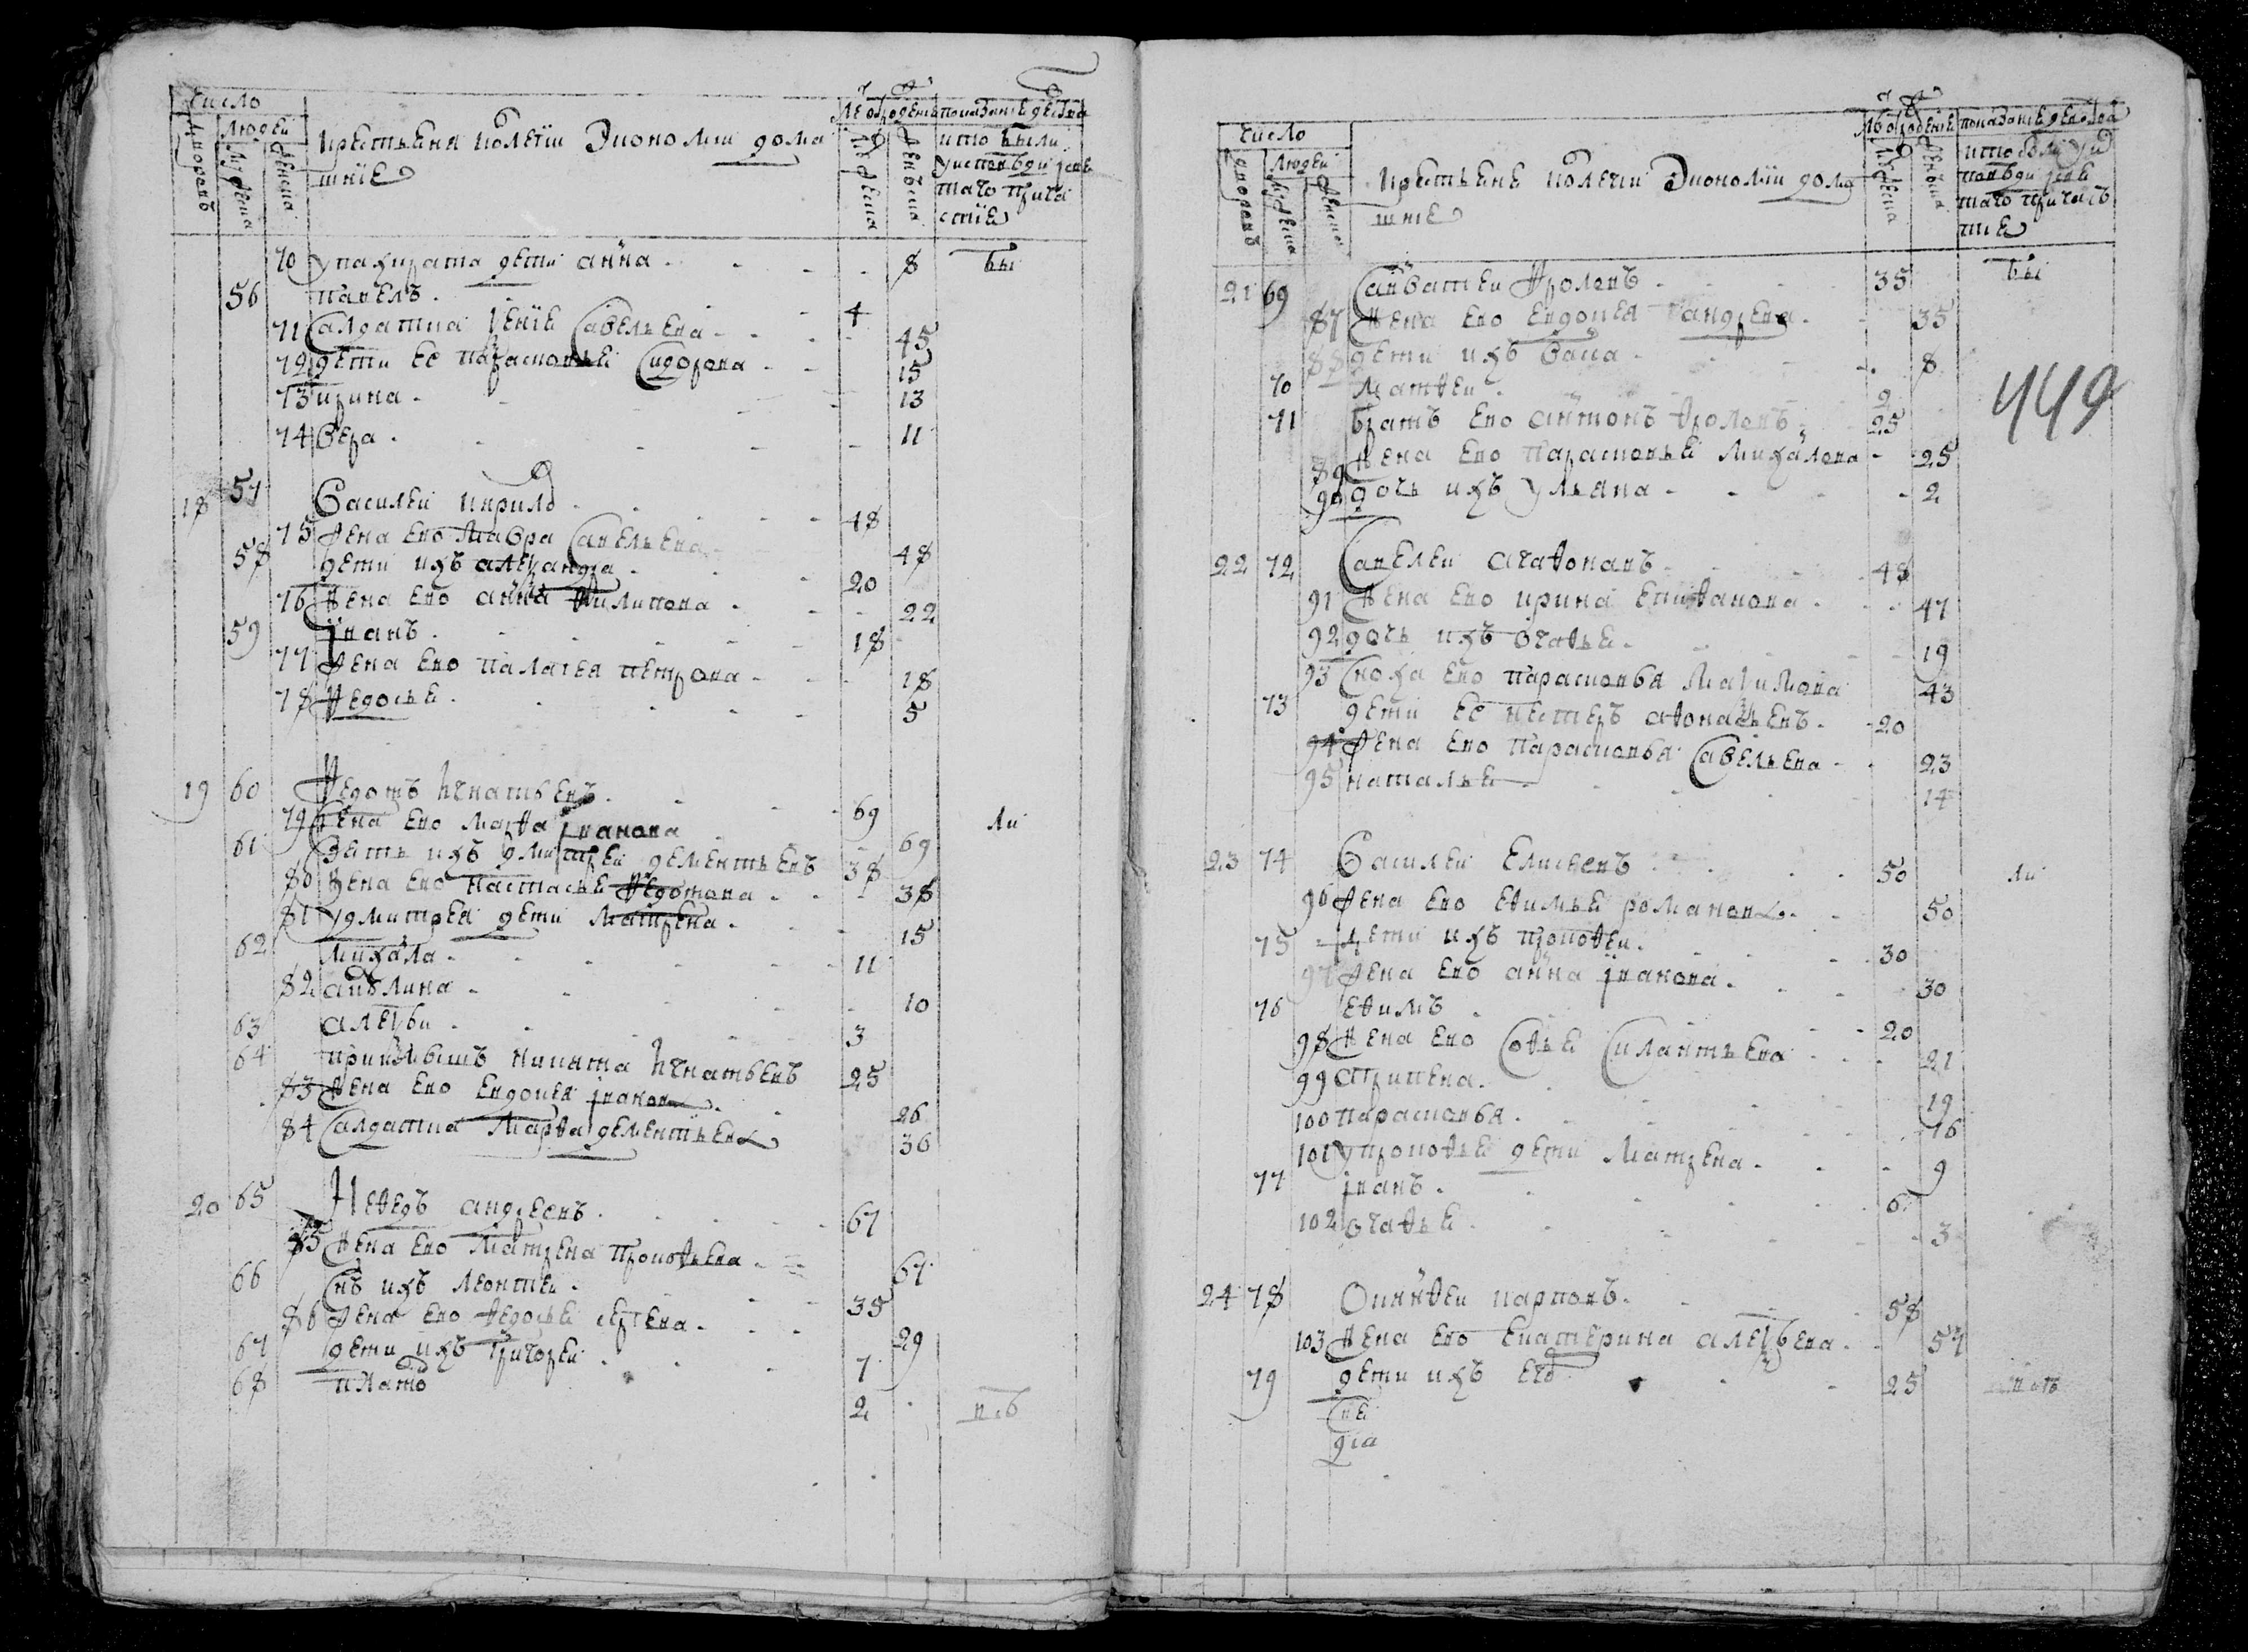 Число
Дворовъ
Людей
Мужеска
Женска
крестьяня колегии экономии дома
шние
Мужеска
Женска
кто были
70 у панкрата дети анна 8 бы
56 павелъ 4
71 Салдатка ксение Савельева 45
72 дети ее парасковьи Сидорова 15
73 ирина 13
74 вера 11
18 57 Василеи кирилъ 48
75 жена ево мавра Савельева 48
58 дети ихъ александра 20
76 жена ево анна филипова 22
59 Iванъ 18
77 жена ево палагея петрова 18
78 Федосье 5
19 60 Федотъ игнатьевъ 69 ли
79 жена ево марфа iванова 69
61 зять ихъ дмитреи дементьевъ 38
80 жена ево настасье Федотова 38
81 у дмитрея дети матрена 15
62 михаила 11
82 акулина 10
63 алексѣи 3
64 приимышъ никита игнатьевъ 25
83 жена ево евдокея iванова 26
84 Салдатка марфа дементьева 36
20 65 Нефедъ андреевъ 67
85 жена ево матрена прокофьева 67
66 Снъ ихъ леонтеи 35
86 жена ево федосье сергева 29
67 дети ихъ григореи 7
68 плато 2
Число
Дворовъ
Людей
Мужеска
Женска
крестьяне колегии экономии дома
шние
Мужеска
Женска
449
21 69 Савватеи Фроловъ 35 бы
87 жена ево евдокея андрева 35
88 дети ихъ васа 8
70 матфеи 2
71 братъ ево антонъ фроловъ 25
89 жена ево парасковьи михаилова 25
90 дочь ихъ ульяна 2
22 72 Савелеи агафонавъ 48
91 жена ево ирина епифанова 47
92 дочь ихъ огафье 19
93 Сноха ево парасковья максимова 43
73 дети ее нестеръ афонасьевъ 20
94 жена ево парасковья Савельева 23
95 наталье 14
23 74 Василеи елисеевъ 50 ли
96 жена ево ефимьи романова 50
75 дети ихъ прокофеи 30
97 жена ево анна iванова 30
76 ефимъ 20
98 жена ево Софье Силантьева 21
99 агрипена 19
100 парасковья 16
101 у прокофье дети матрена 9
77 iванъ 6
102 огафье 3
24 78 карповъ 58
103 жена ево екатерина алексѣева 57
79 дети ихъ его 25